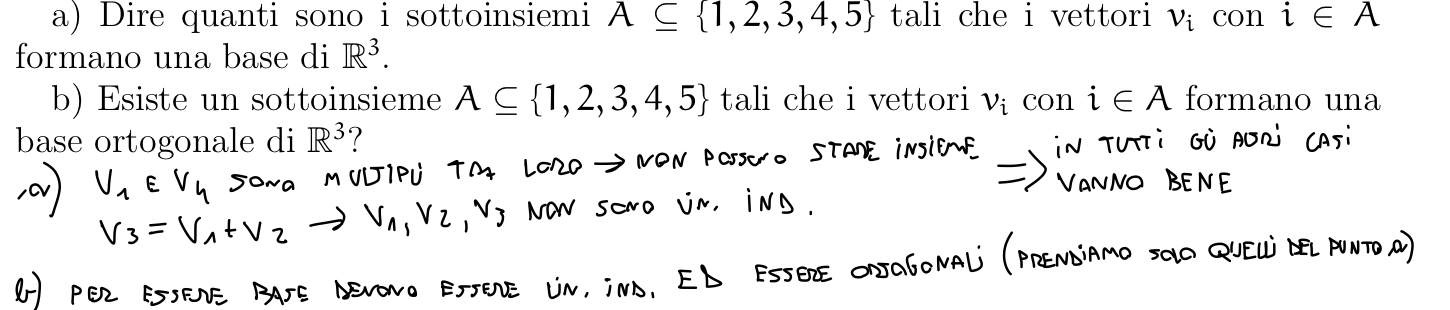 a) Dire quanti sono i sottoinsiemi A ⊆ {1, 2, 3, 4, 5} tali che i vettori vᵢ con i ∈ A
formano una base di ℝ³.
b) Esiste un sottoinsieme A ⊆ {1, 2, 3, 4, 5} tali che i vettori vᵢ con i ∈ A formano una
base ortogonale di ℝ³?
a) V₁ E V₄ SONO MULTIPLI TRA LORO → NON POSSONO STARE INSIEME ⇒ IN TUTTI GLI ALTRI CASI VANNO BENE
V₃ = V₁ + V₂ → V₁, V₂, V₃ NON SONO LIN. IND.
b) PER ESSERE BASE DEVONO ESSERE LIN. IND. ED ESSERE ORTOGONALI (PRENDIAMO SOLO QUELLI DEL PUNTO a)